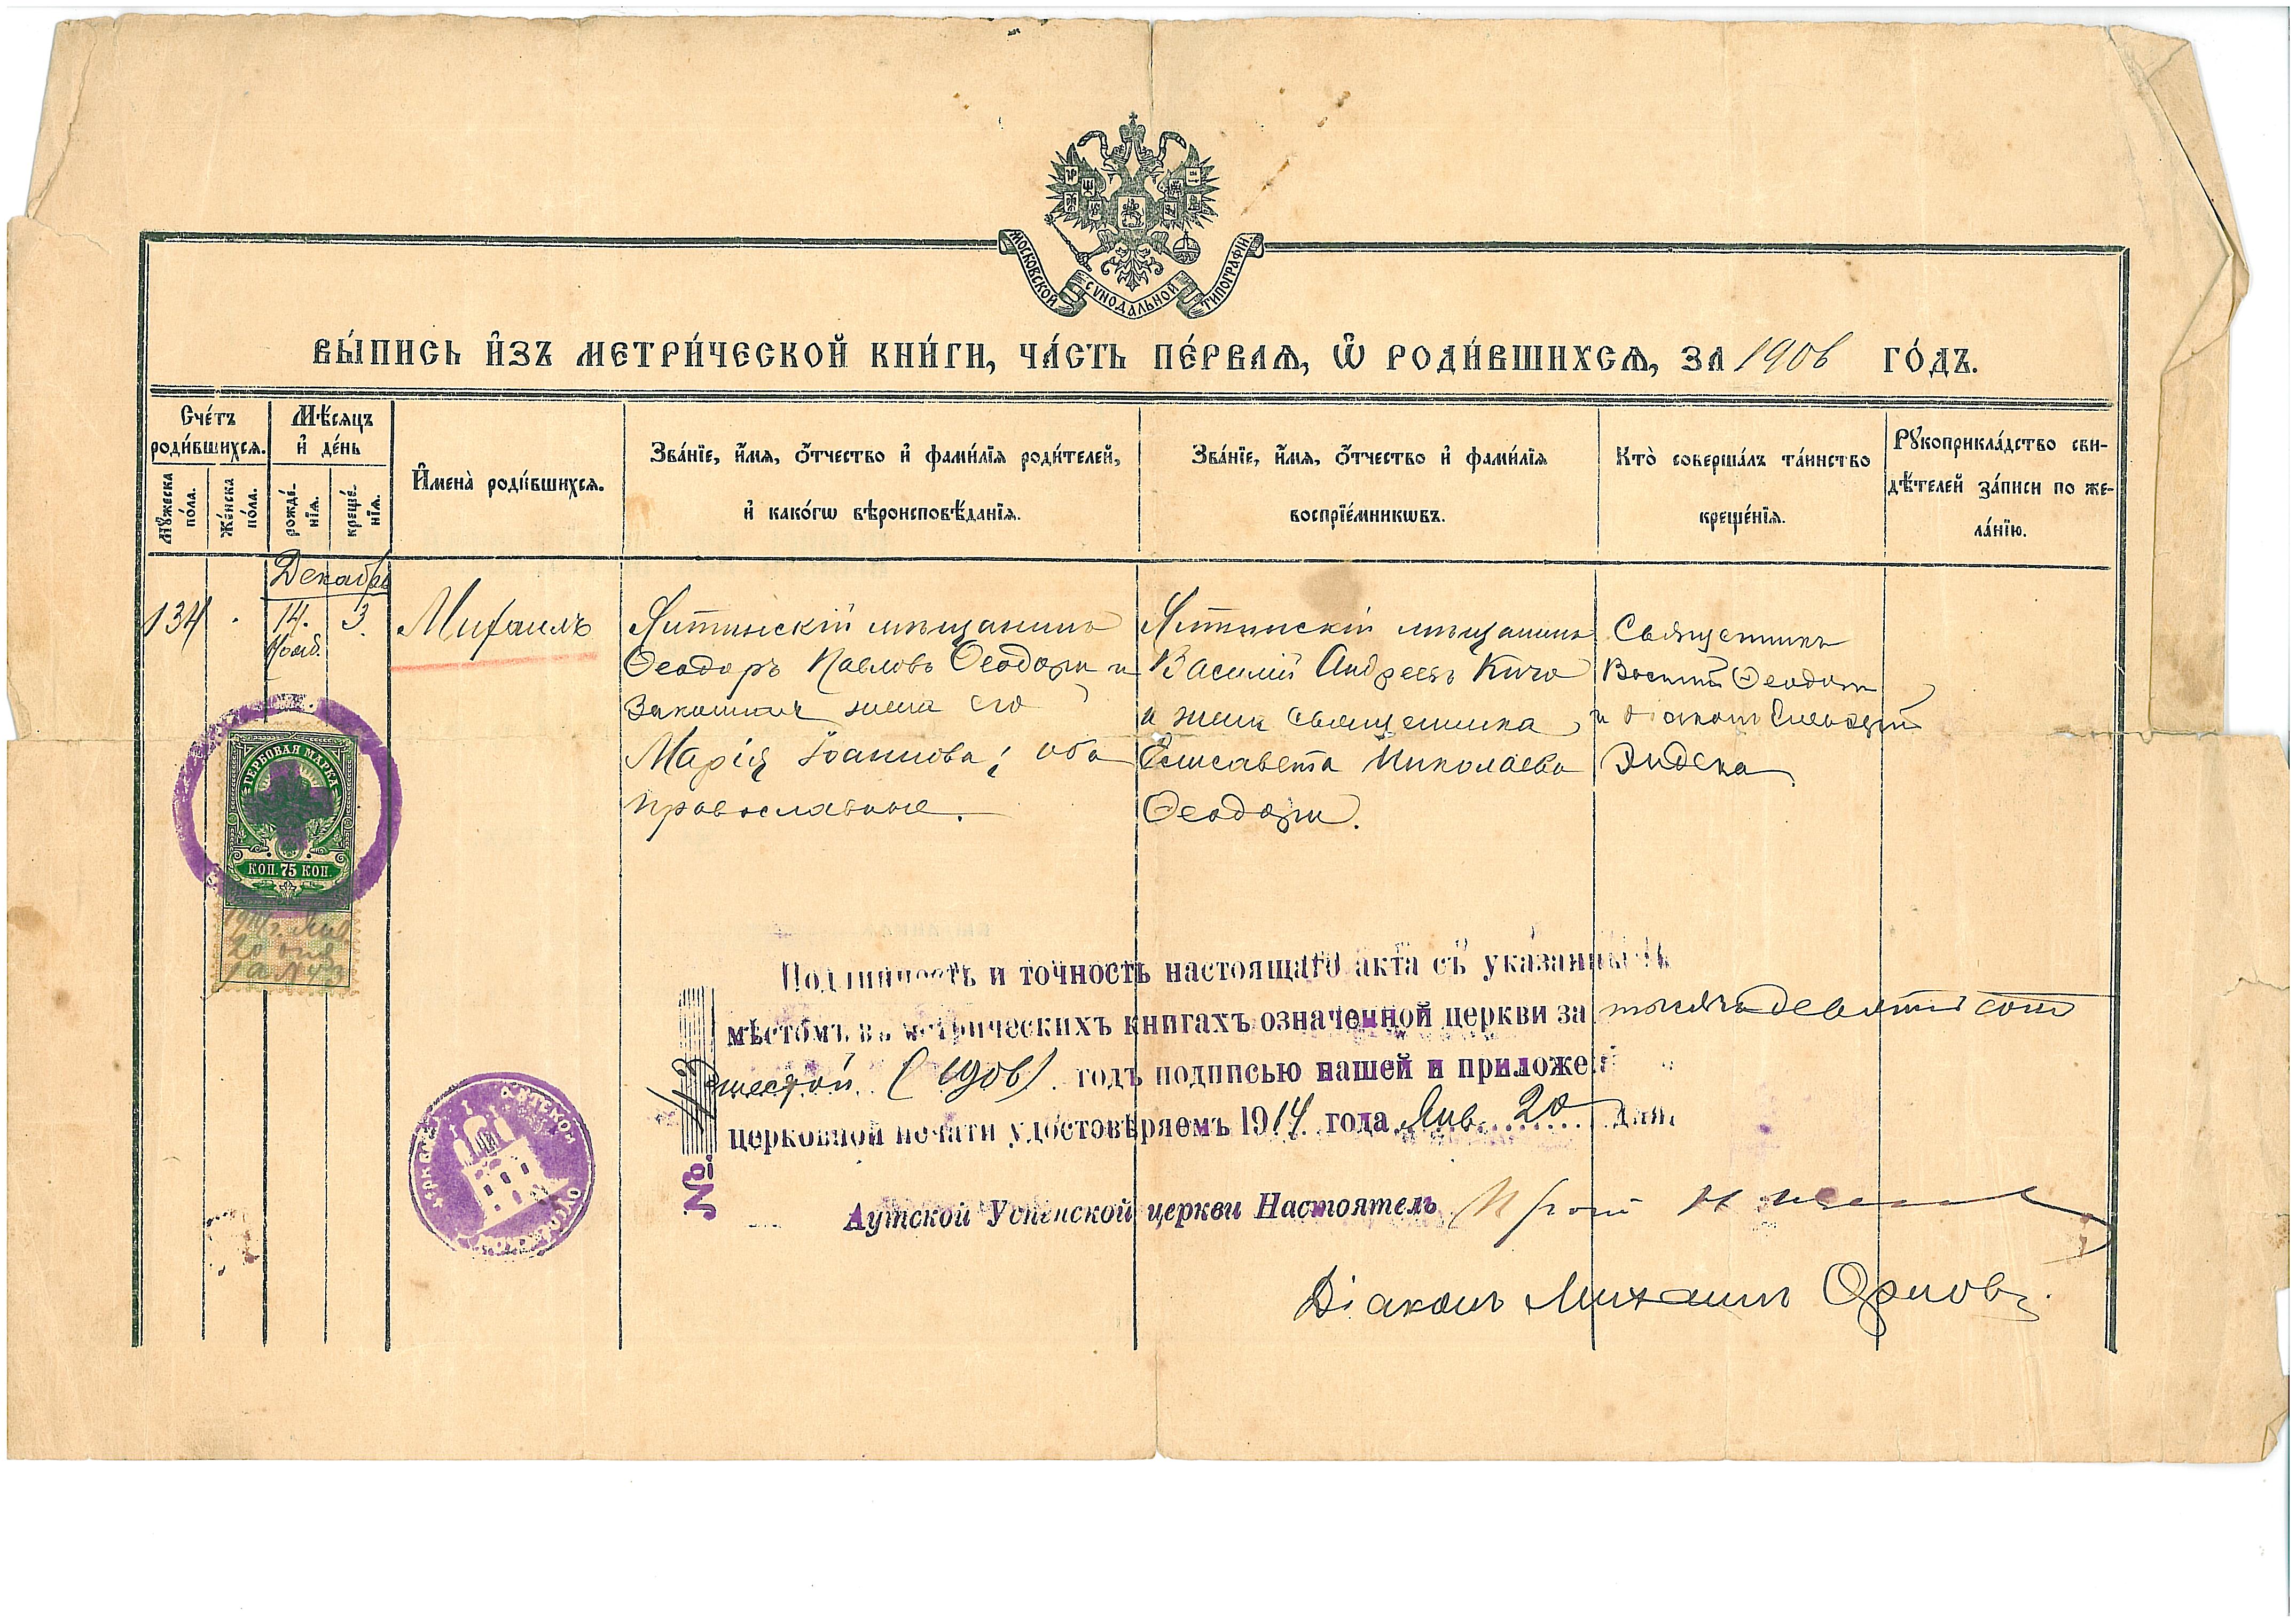 МОСКОВСКОЙ СѴНОДАЛЬНОЙ ТИПОГРАФІИ.
ВЫ́ПИСЬ И҆ЗЪ МЕТРИ́ЧЕСКОЙ КНИ́ГИ, ЧА́СТЬ ПЕ́РВАѦ, Ѡ҆ РОДИ́ВШИХСѦ, ЗА 1906 ГО́ДЪ.
Сче́тъ роди́вшихсѧ.
Мѣ́сяцъ и҆ де́нь
Мꙋ́жеска по́ла.
Же́нска по́ла.
рожде́нїѧ.
креще́нїѧ.
И҆мена̀ роди́вшихсѧ.
Зва́нїе, и҆́мѧ, ѻ҆́тчество и҆ фами́лїѧ роди́телей,
и҆ како́гѡ вѣроисповѣ́данїѧ.
Зва́нїе, и҆́мѧ, ѻ҆́тчество и҆ фами́лїѧ
воспрїе́мникѡвъ.
Кто̀ соверша́лъ та́инство
креще́нїѧ.
Рꙋкоприкла́дство сви-
дѣ́телей за́писи по же-
ла́нїю.
Декабрь
134
14. Нояб.
3.
Михаилъ
Ялтинскій мѣщанинъ
Ѳеодоръ Павловъ Ѳеодори и
законная жена его
Марія Іоаннова; оба
православные.
Ялтинскій мѣщанинъ
Василій Андреевъ Кичо
и жена священника
Елисавета Николаева
Ѳеодори.
Священникъ
Василій Ѳеодори
и діаконъ
ГЕРБОВАЯ МАРКА
КОП. 75 КОП.
1914 г. Янв.
20 дня
Подлинность и точность настоящаго акта съ указаннымъ
мѣстомъ въ метрическихъ книгахъ означенной церкви за тысяча девятьсотъ
шестой (1906) годъ подписью нашей и приложе
церковной печати удостовѣряемъ 1914 года Янв. 20 дня
№ 43
Аутской Успенской церкви Настоятель Прот.
Діаконъ Михаилъ Орловъ.